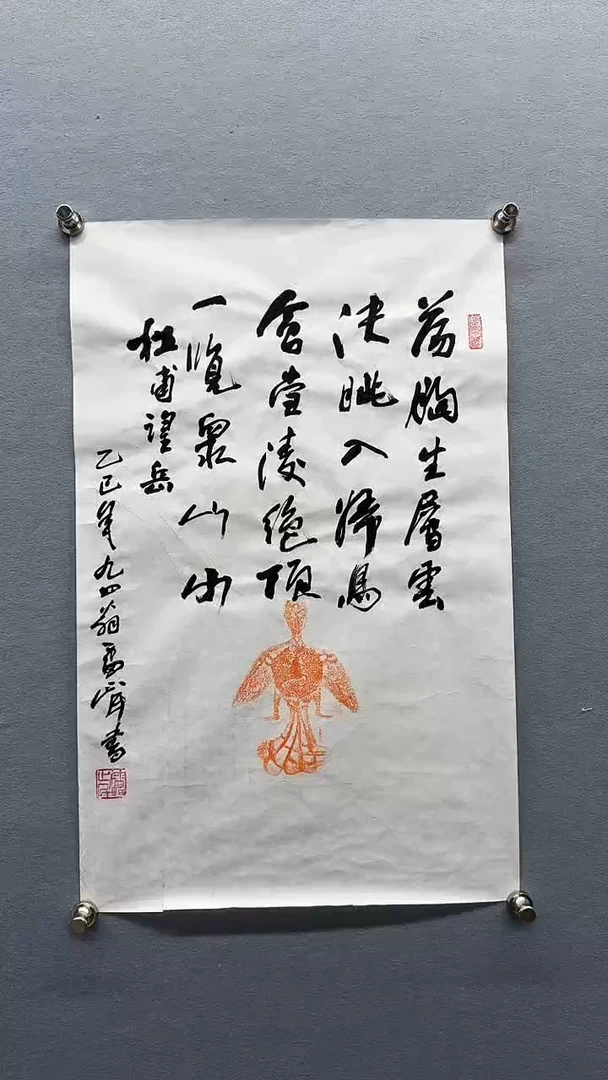 荡胸生層雲
決眦入歸鳥
會當凌絕頂
一覽眾山小
杜甫望岳
乙巳年九四翁書